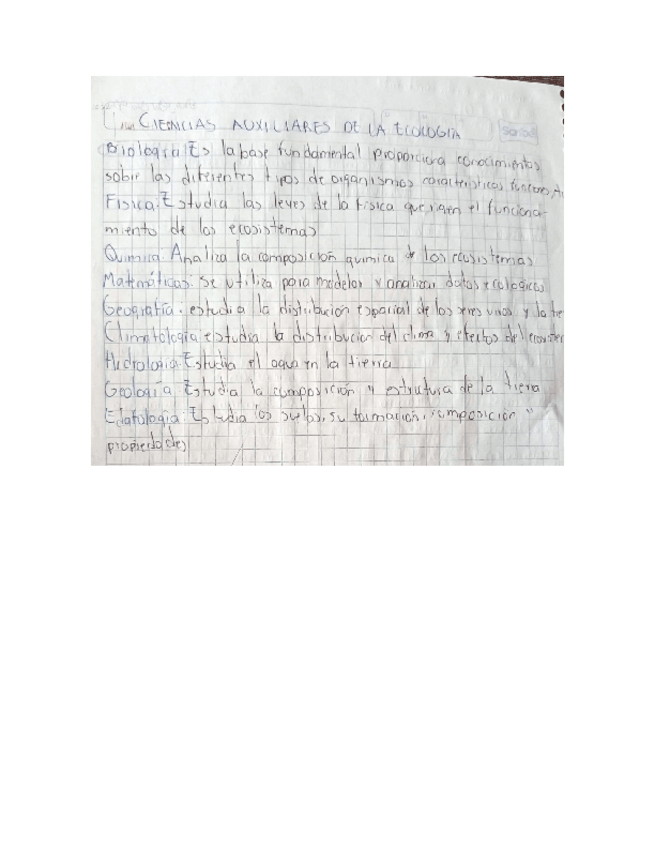 CIENCIAS AUXILIARES DE LA ECOLOGIA
Biologia: Es la base fundamental proporciona conocimientos
sobre las diferentes tipos de organismos caracteristicas
Fisica: Estudia las leyes de la fisica que rigen el funciona-
miento de los ecosistemas
Quimica: Analiza la composición quimica de los ecosistemas
Matemáticas: se utiliza para modelar y analizar datos ecologicos
Geografía: estudia la distribución espacial de los seres vivos y la
Climatologia estudia la distribucion del clima y efectos del
Hidrologia: Estudia el agua en la tierra
Geología: Estudia la composición y estrutura de la tierra
Edafologia: Estudia los suelos, su formación, composición
propiedades